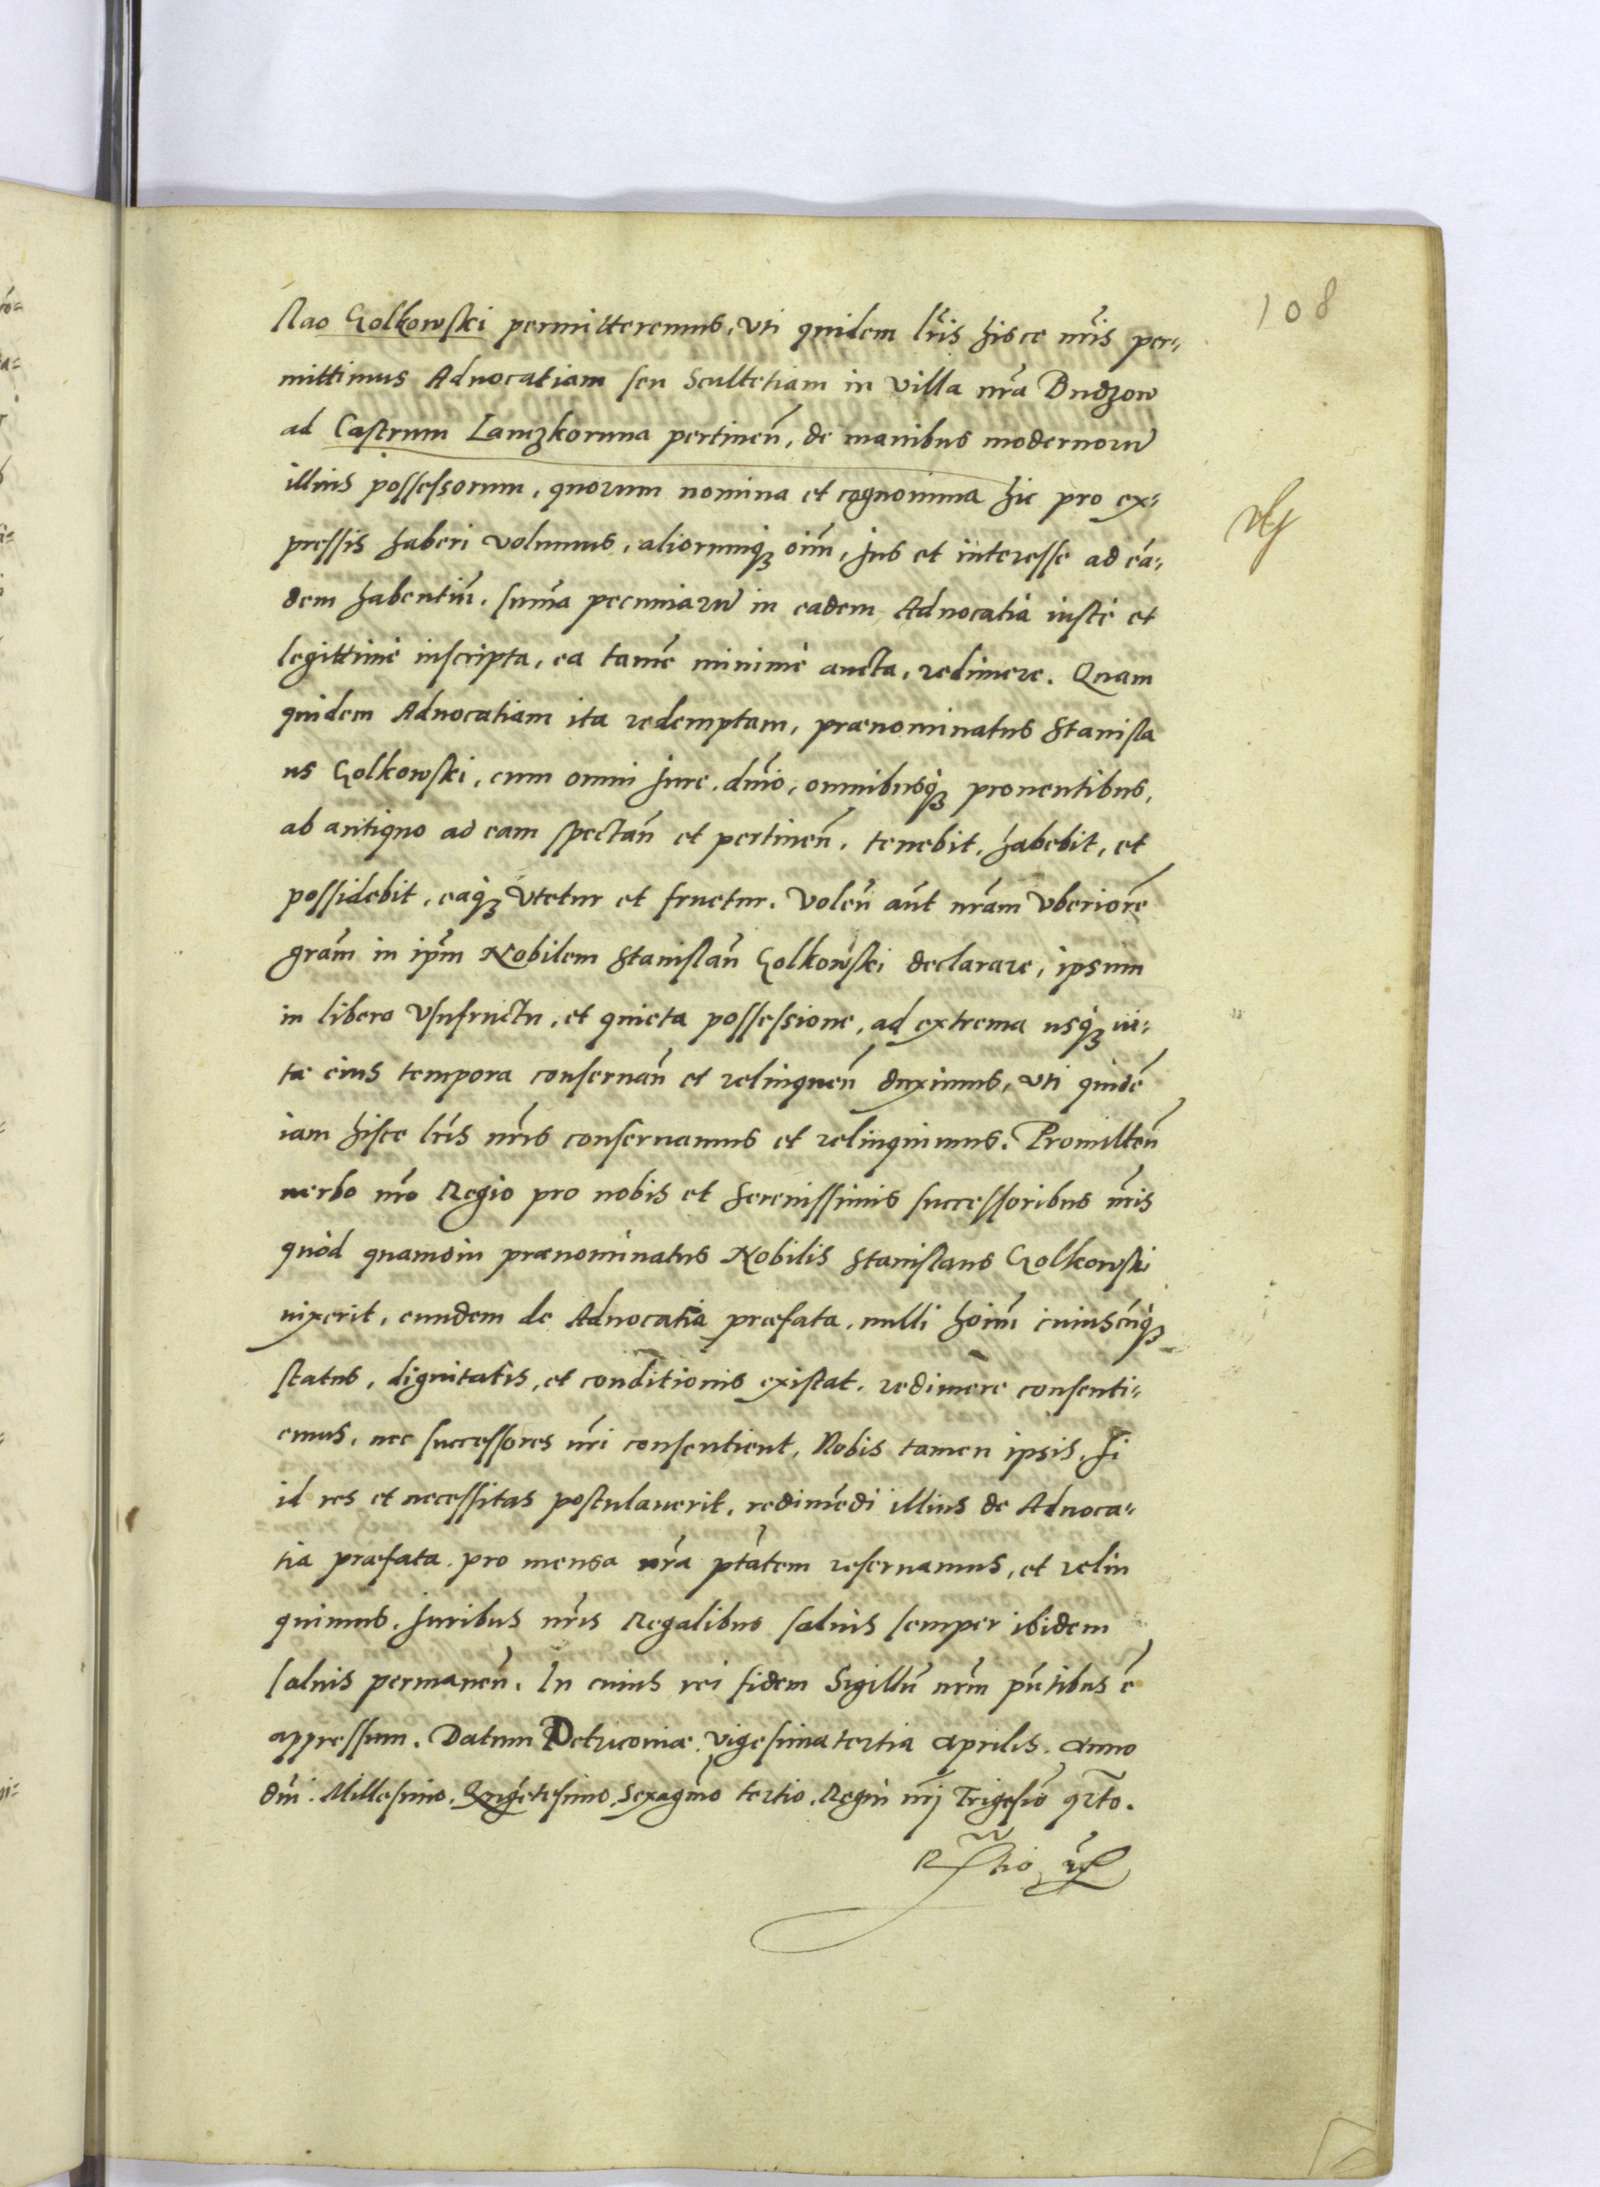 108
slao Golkowski permitteremus, vti quidem lr̃is hisce nr̃is per=
mittimus Aduocatiam seu Scultetiam in villa nr̃a Budzow
ad Castrum Lanczkoruna pertineñ, de manibus modernorũ
illius possessorum, quorum nomina et cognomina hic pro ex=
pressis haberi volumus, aliorumq̃ȝ oim̃, Jus et interesse ad eã=
dem habentiũ, sum̃a pecuniarũ in eadem Aduocatia iustè et
legittimè inscripta, ea tamẽ minimè aucta, redimere. Quam
quidem Aduocatiam ita redemptam, prænominatus Stanisla
us Golkowski, cum omni Jure, dñio, omnibusq̃ȝ prouentibus,
ab antiquo ad eam spectañ et pertineñ, tenebit, habebit, et
possidebit, eaq̃ȝ vtetur et fruetur. Voleñ aũt nr̃am vberiorẽ
gr̃am in ip̃m Nobilem Stanislaũ Golkowski declarare, ipsum
in libero Vsufructu, et quieta possessione, ad extrema usq̃ȝ ui=
tæ eius tempora conseruañ et relinqueñ duximus, vti quidẽ
iam hisce lr̃is nr̃is conseruamus et relinquimus. Promitteñ
uerbo nr̃o Regio pro nobis et Serenissimis successoribus nr̃is
quòd quamdiu prænominatus Nobilis Stanislaus Golkowski
uixerit, eundem de Aduocatia præfata, nulli hoim̃ cuiuscũq̃ȝ
status, dignitatis, et conditionis existat, redimere consenti=
emus, nec successores nr̃i consentient, Nobis tamen ipsis, si
id res et necessitas postulauerit, redimẽdi illius de Aduoca=
tia præfata pro mensa nr̃a ptãtem reseruamus, et relin
quimus. Juribus nr̃is Regalibus saluis semper ibidem
saluis permaneñ. In cuius rei fidem Sigillũ nr̃m pñtibus ẽ
appressum. Datum Petricouiæ vigesima tertia Aprilis. Anno
dñi Millesimo, Qnġẽtesimo, Sexagm̃o tertio, Regni nr̃j Trigesiõ qrto.